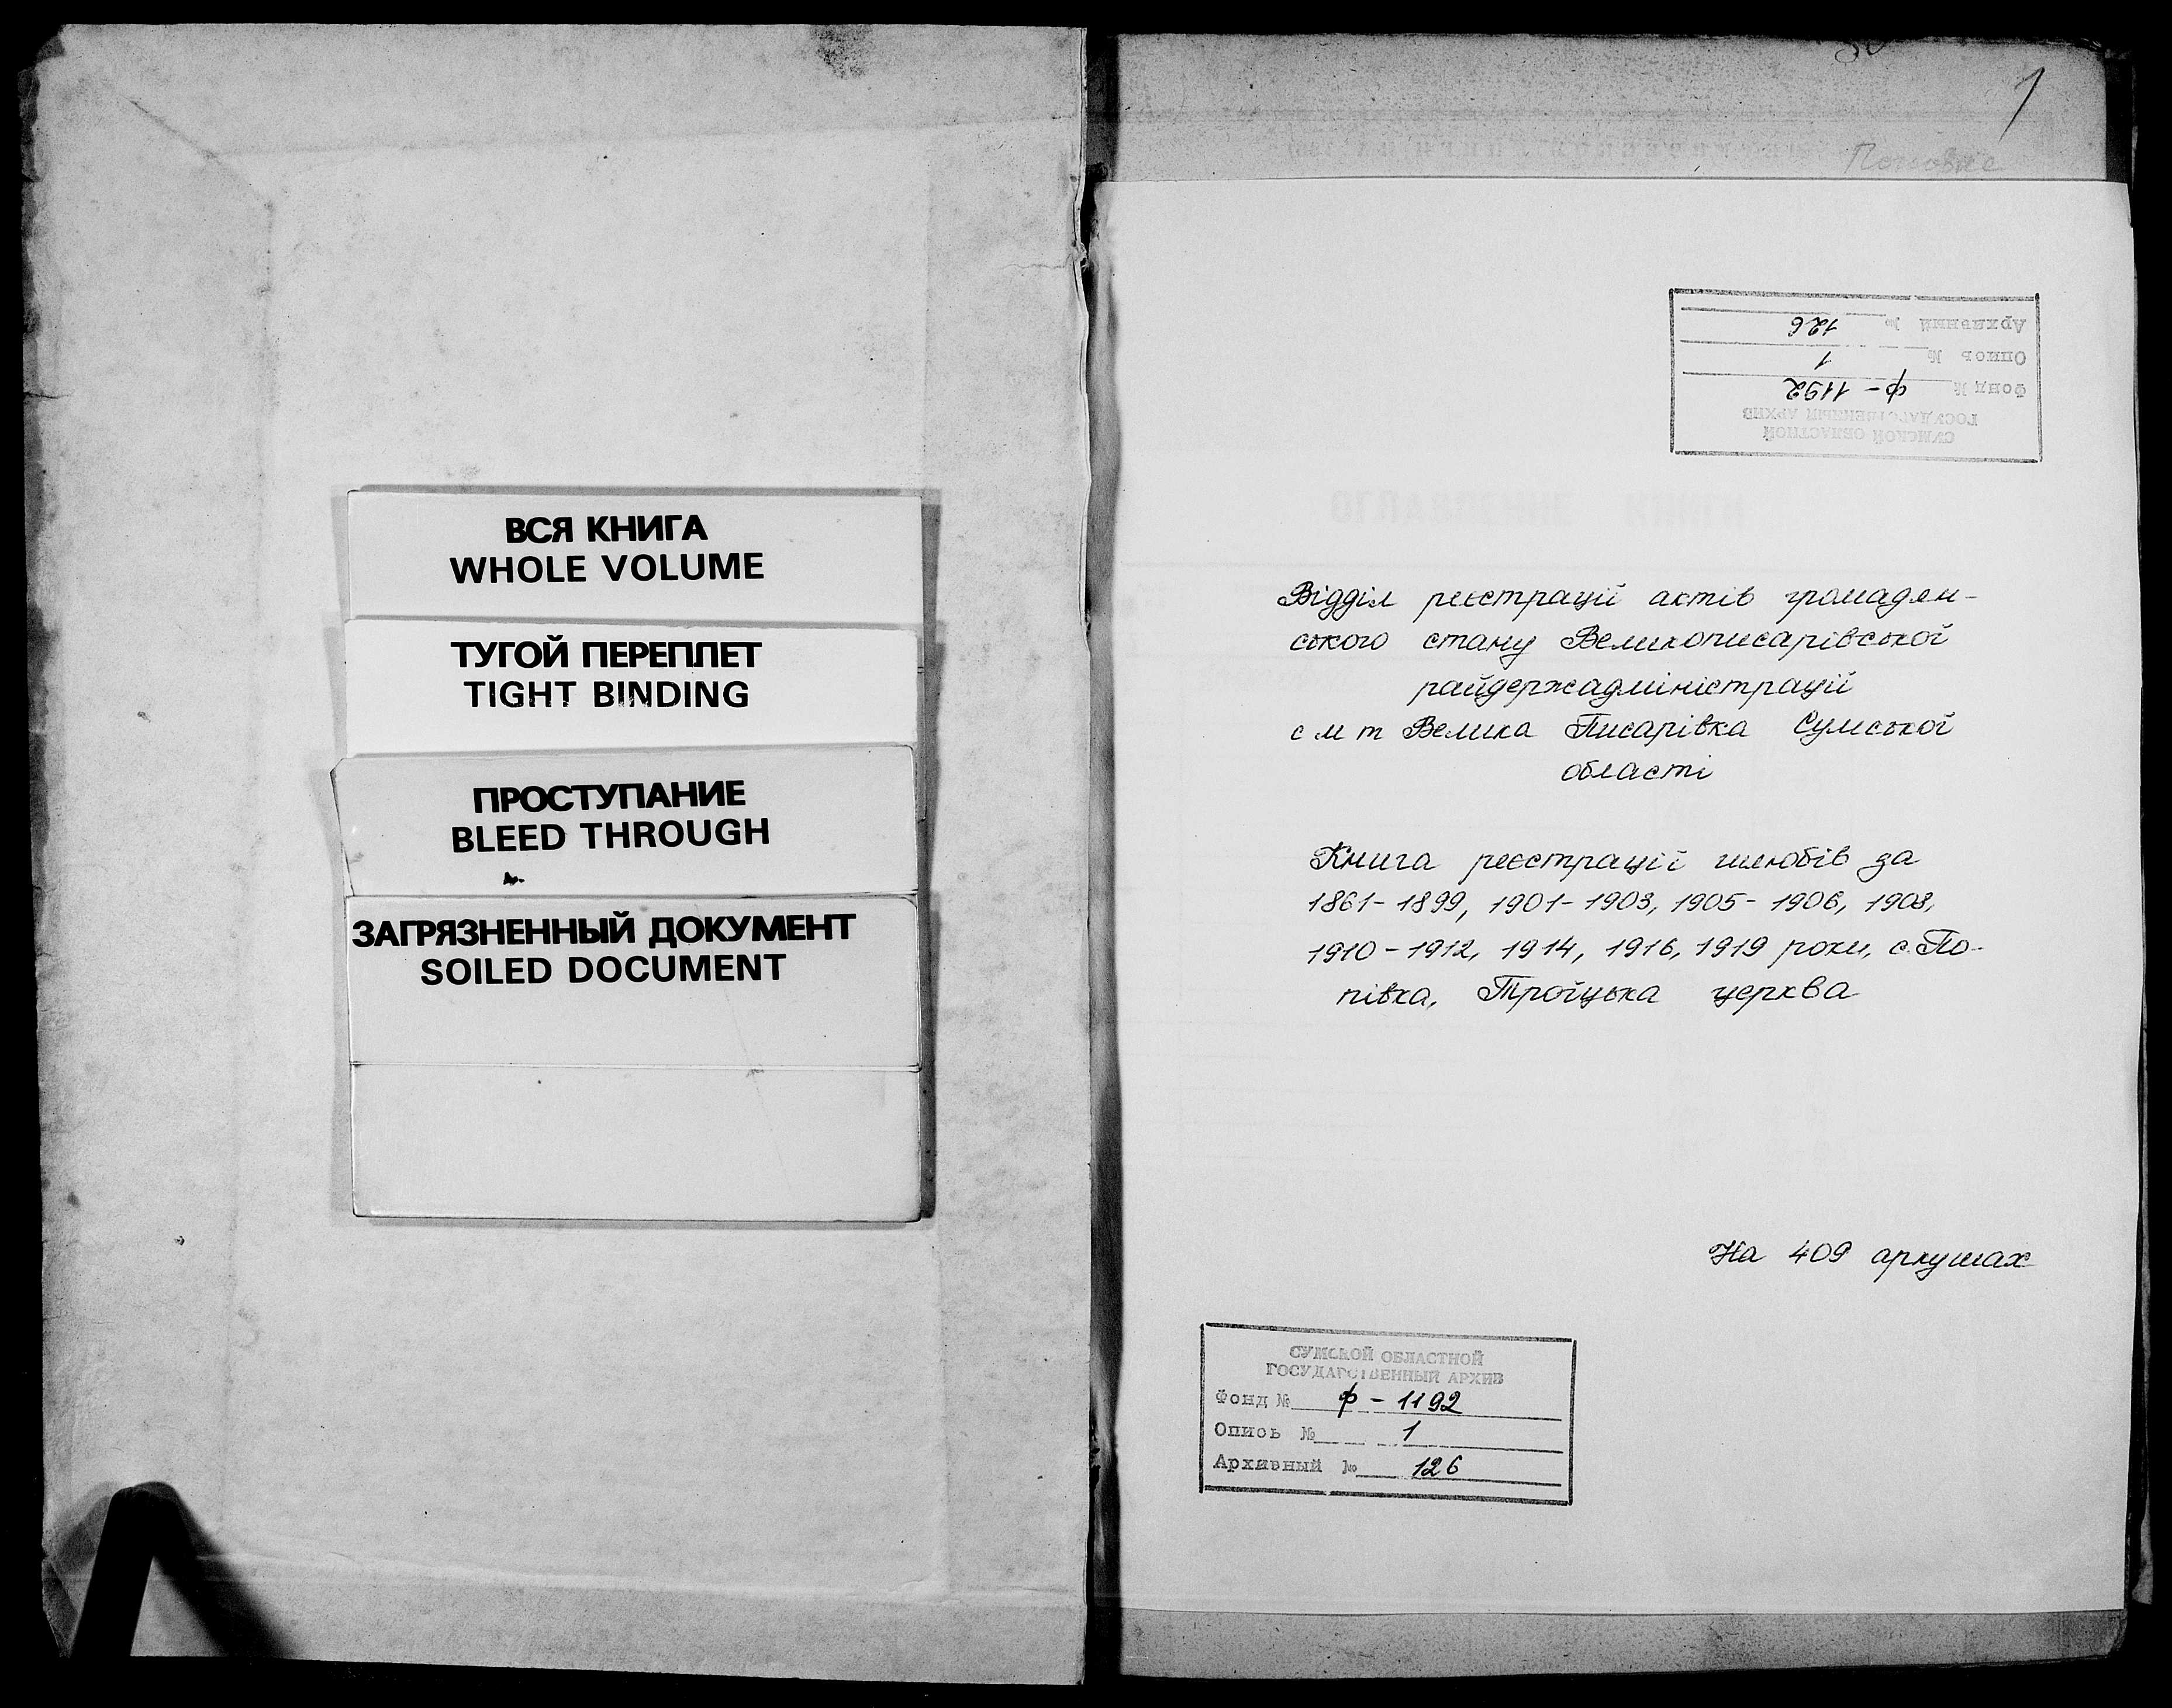 ВСЯ КНИГА
WHOLE VOLUME
ТУГОЙ ПЕРЕПЛЕТ
TIGHT BINDING
ПРОСТУПАНИЕ
BLEED THROUGH
ЗАГРЯЗНЕННЫЙ ДОКУМЕНТ
SOILED DOCUMENT
1
СУМСКОЙ ОБЛАСТНОЙ
ГОСУДАРСТВЕННЫЙ АРХИВ
Фонд № ф-1192
Опись № 1
Архивный № 126
ОГЛАВЛЕНИЕ КНИГИ
Відділ реєстрації актів громадян-
ського стану Великописарівської
райдержадміністрації
смт Велика Писарівка Сумської
області
Книга реєстрації шлюбів за
1861-1899, 1901-1903, 1905-1906, 1908,
1910-1912, 1914, 1916, 1919 роки, с. По-
півка, Троїцька церква
На 409 аркушах
СУМСКОЙ ОБЛАСТНОЙ
ГОСУДАРСТВЕННЫЙ АРХИВ
Фонд № ф-1192
Опись № 1
Архивный № 126